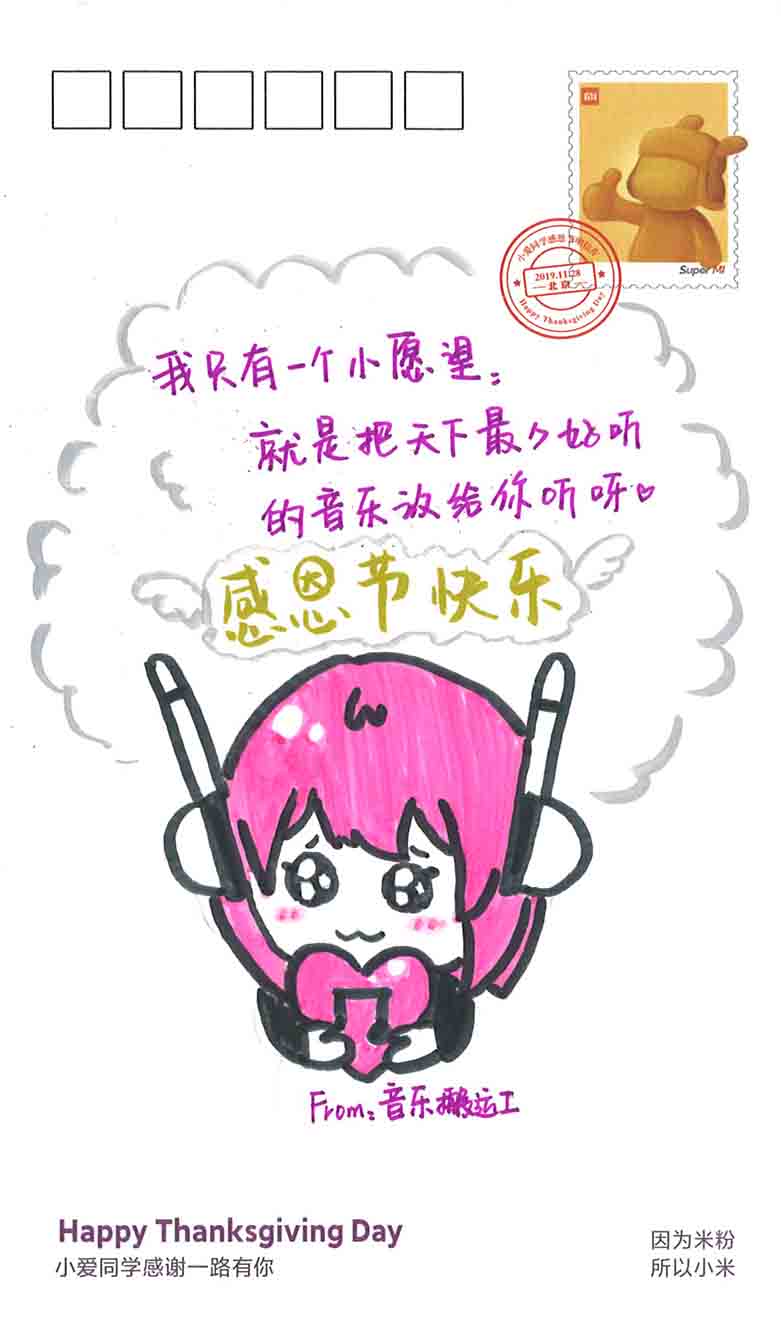 MI
Super MI
小爱同学感恩
2019.11.28
北京
Happy Thanksgiving Day
我只有一个小愿望:
就是把天下最最好听
的音乐放给你听呀♡
感恩节快乐
From:音乐搬运工
Happy Thanksgiving Day
小爱同学感谢一路有你
因为米粉
所以小米